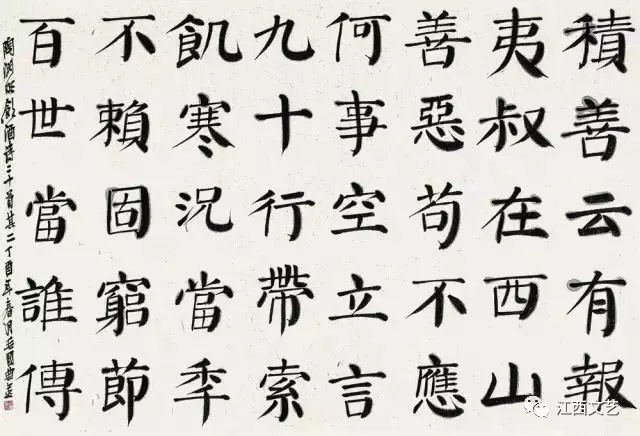 積善云有報
夷叔在西山
善惡苟不應
何事空立言
九十行帶索
飢寒況當秊
不賴固窮節
百世當誰傳
陶淵明飲酒詩二十首其二丁酉年春月毛國典書
江西文艺